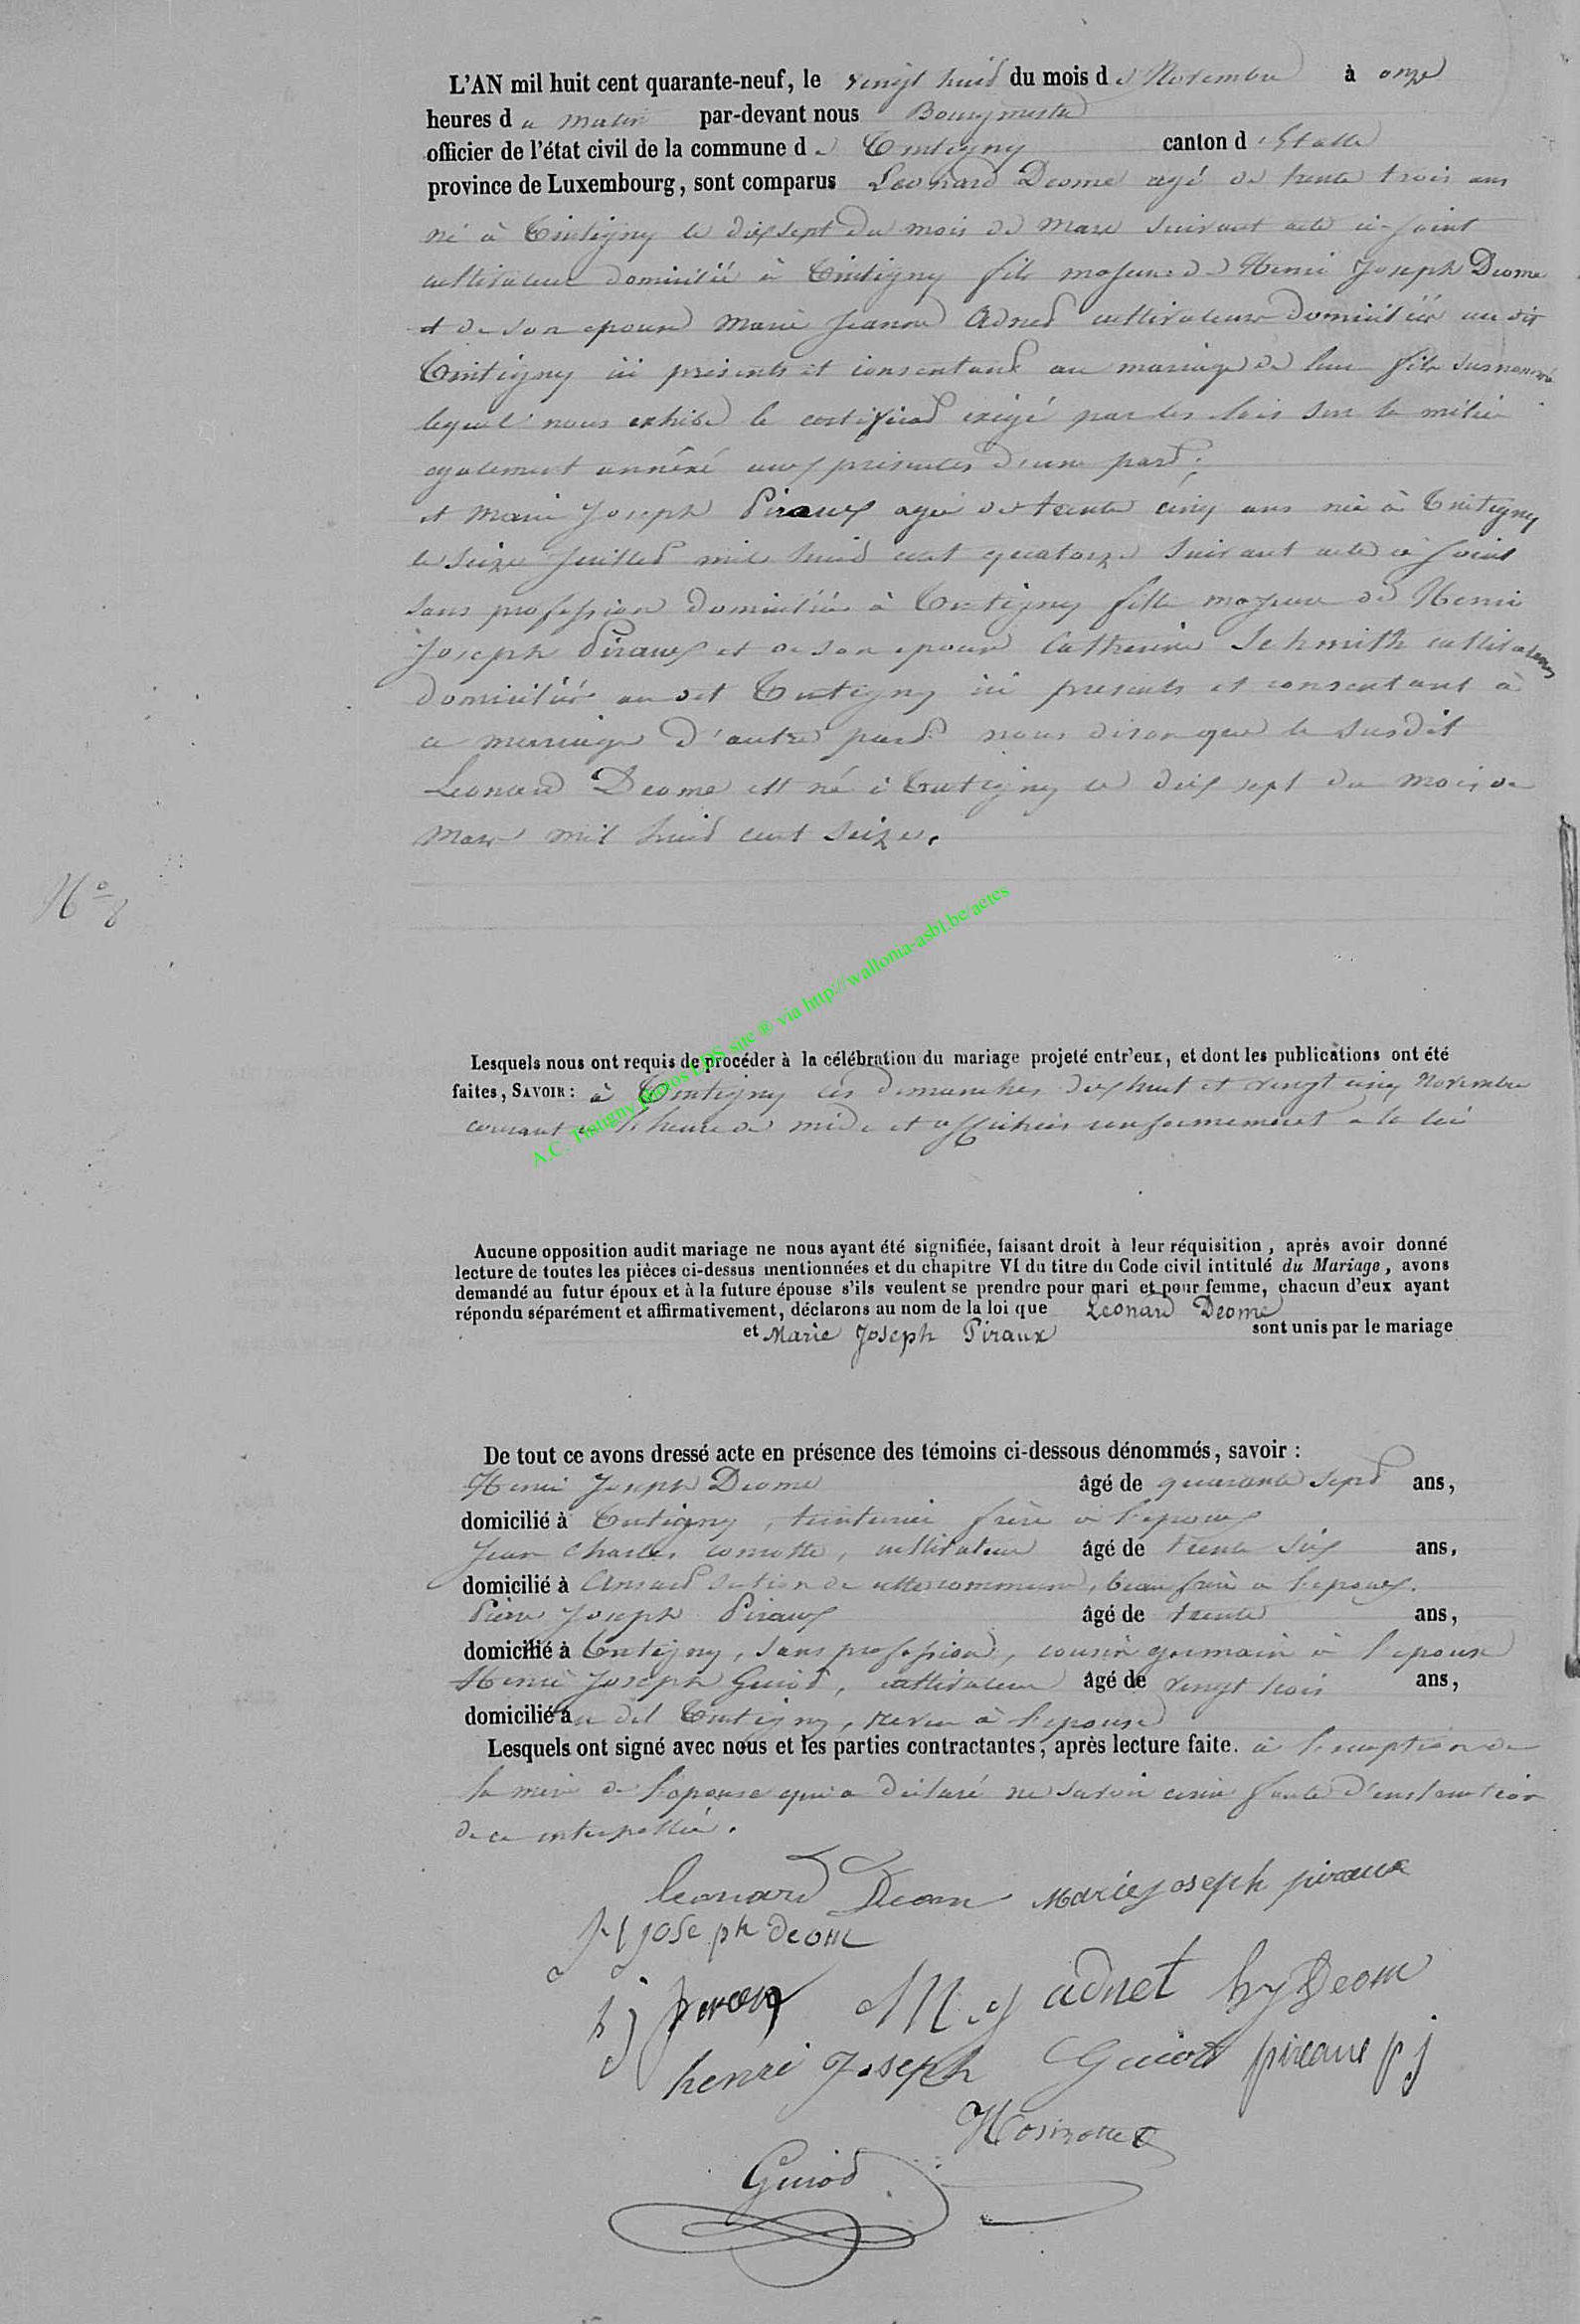 L'AN mil huit cent quarante-neuf, le vingt huid du mois de Novembre à onze
heures du matin par-devant nous Bourgmestre
officier de l'état civil de la commune de Tintigny canton d'Etalle
province de Luxembourg, sont comparus Leonard Deome agé de trente trois ans
né à Tintigny le dix sept du mois de Mars suivant acte ci-joint
cultivateur domicilié à Tintigny fils majeur de Henri Joseph Deome
et de son epouse Marie Jeanne Adnet cultivateurs domiciliés au dit
Tintigny ici présents et consentant au mariage de leur fils susnommé
lequel nous exhibe le certificat exigé par les lois sur la milice
egalement annéxé aux présentes d'une part;
et Marie Joseph Piraux agée de trente cinq ans née à Tintigny
le seize juillet mil huid cent quatorze suivant acte ci joint
sans profession domiciliée à Tintigny fille majeure de Henri
Joseph Piraux et de son epouse Catherine Schmith cultivateurs
domiciliés au dit Tintigny ici présents et consentant à
ce mariage d'autre part nous disons que le susdit
Leonard Deome est né à Tintigny le dix sept du mois de
Mars mil huid cent seize.
No 8
Lesquels nous ont requis de procéder à la célébration du mariage projeté entr'eux, et dont les publications ont été
faites, SAVOIR: à Tintigny les dimanches dix huit et vingt cinq Novembre
courant à l'heure de midi et affichées conformement a la loi
A.C. Tintigny photos LDS site ® via http://wallonia-asbl.be/actes
Aucune opposition audit mariage ne nous ayant été signifiée, faisant droit à leur réquisition, après avoir donné
lecture de toutes les pièces ci-dessus mentionnées et du chapitre VI du titre du Code civil intitulé du Mariage, avons
demandé au futur époux et à la future épouse s'ils veulent se prendre pour mari et pour femme, chacun d'eux ayant
répondu séparément et affirmativement, déclarons au nom de la loi que Leonard Deome
et Marie Joseph Piraux sont unis par le mariage
De tout ce avons dressé acte en présence des témoins ci-dessous dénommés, savoir:
Henri Joseph Deome âgé de quarante sept ans,
domicilié à Tintigny, teinturier frère a l'epoux
Jean Charles, cultivateur âgé de trente six ans,
domicilié à Ansart section de cette commune, beau frère a l'epoux.
Pierre Joseph Piraux âgé de trente ans,
domicilié à Tintigny, sans profession, cousin germain à l'epouse
Henri Joseph Guiot, cultivateur âgé de vingt trois ans,
domicilié au dit Tintigny, neveu à l'epouse
Lesquels ont signé avec nous et les parties contractantes, après lecture faite. à l'exception de
la mère de l'epouse qui a déclaré ne savoir ecrire faute d'instruction
de ce interpellée.
leonard Deom Marie joseph piraux
h joseph deom
h j piraux M J adnet hy Deom
henri Joseph Guiot piraux p j
Guiot